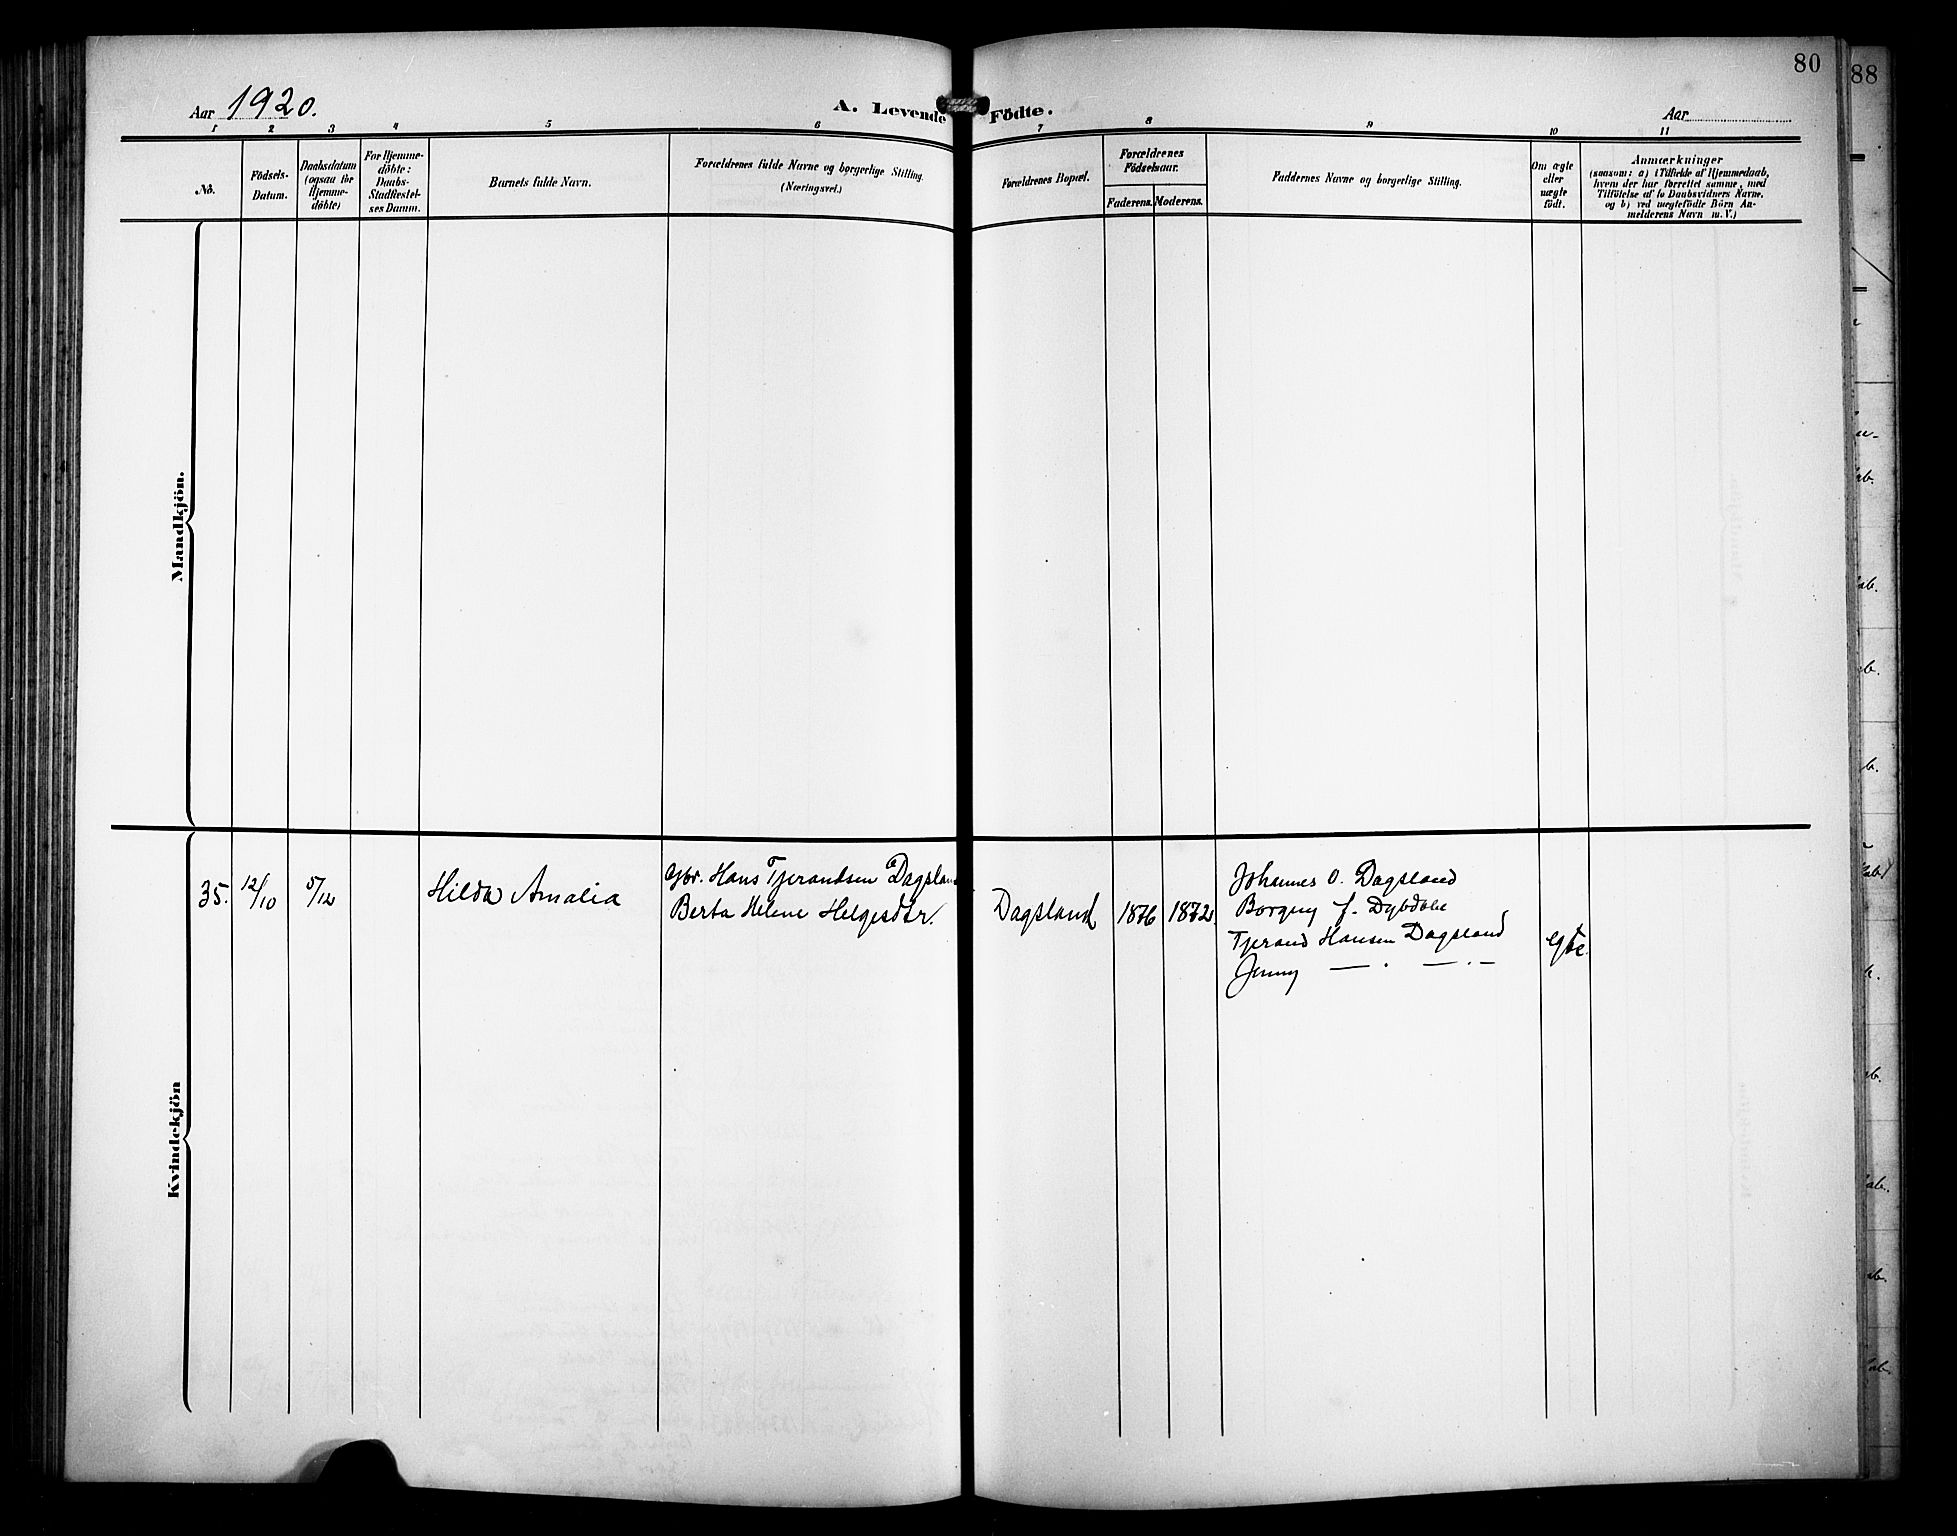 80
88
Aar 1920.
A. Levende Födte.
Aar
1 2 3 4 5 6 7 8 9 10 11
No.
Födsels-
Datum.
Daabsdatum
(ogsaa for
Hjemme-
döbte)
For Hjemme-
döbte:
Daabs-
Stadfæstel-
ses Datum.
Barnets fulde Navn.
Forældrenes fulde Navne og borgerlige Stilling.
(Næringsvei.)
Forældrenes Bopæl.
Forældrenes
Födselsaar.
Faderens. Moderens.
Faddernes Navne og borgerlige Stilling.
Om ægte
eller
uægte
födt.
Anmærkninger
(saasom: a) i Tilfælde af Hjemmedaab,
hvem der har forrettet samme, med
Tilföielse af to Daabsvidners Navne,
og b) ved uægtefödte Börn An-
melderens Navn m. V.)
Mandkjön.
Kvindekjön
35. 12/10 5/12 Hilda Amalia
Gbr. Hans Tjerandsen Dagsland
Berta Helene Helgesdtr.
Dagsland 1876 1872
Johannes O. Dagsland
Borgny f. Dybdahl
Tjerand Hansen Dagsland
Jenny — . — . —
egte